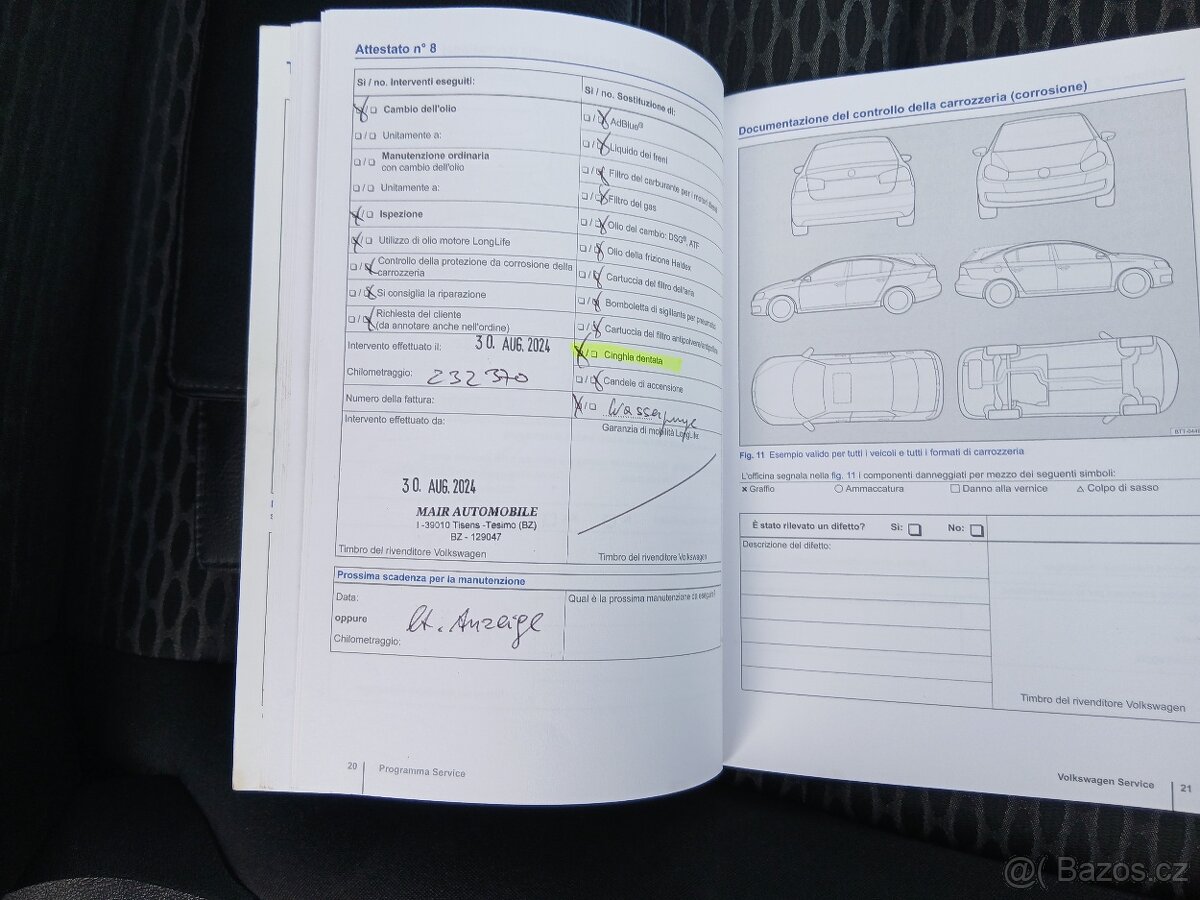 Attestato n° 8
Sì / no. Interventi eseguiti:
Cambio dell'olio
Unitamente a:
Manutenzione ordinaria
con cambio dell'olio
Unitamente a:
Ispezione
Utilizzo di olio motore LongLife
Controllo della protezione da corrosione della
carrozzeria
Si consiglia la riparazione
Richiesta del cliente
(da annotare anche nell'ordine)
Intervento effettuato il: 30. AUG. 2024
Chilometraggio: 232370
Numero della fattura:
Intervento effettuato da:
30 AUG. 2024
MAIR AUTOMOBILE
I -39010 Tisens -Tesimo (BZ)
BZ - 129047
Timbro del rivenditore Volkswagen
Sì / no. Sostituzione di:
AdBlue®
Liquido dei freni
Filtro del carburante per i motori diesel
Filtro del gas
Olio del cambio: DSG®, ATF
Olio della frizione Haldex
Cartuccia del filtro dell'aria
Bomboletta di sigillante per pneumatici
Cartuccia del filtro antipolvere/antipolline
Cinghia dentata
Candele di accensione
Garanzia di mobilità LongLife
Timbro del rivenditore Volkswagen
Prossima scadenza per la manutenzione
Data:
oppure
Chilometraggio:
lt. Anzeige
Qual è la prossima manutenzione da eseguire?
20 Programma Service
Documentazione del controllo della carrozzeria (corrosione)
Fig. 11 Esempio valido per tutti i veicoli e tutti i formati di carrozzeria
L'officina segnala nella fig. 11 i componenti danneggiati per mezzo dei seguenti simboli:
x Graffio ○ Ammaccatura □ Danno alla vernice △ Colpo di sasso
È stato rilevato un difetto? Sì: □ No: □
Descrizione del difetto:
Timbro del rivenditore Volkswagen
Volkswagen Service 21
@( Bazos.cz